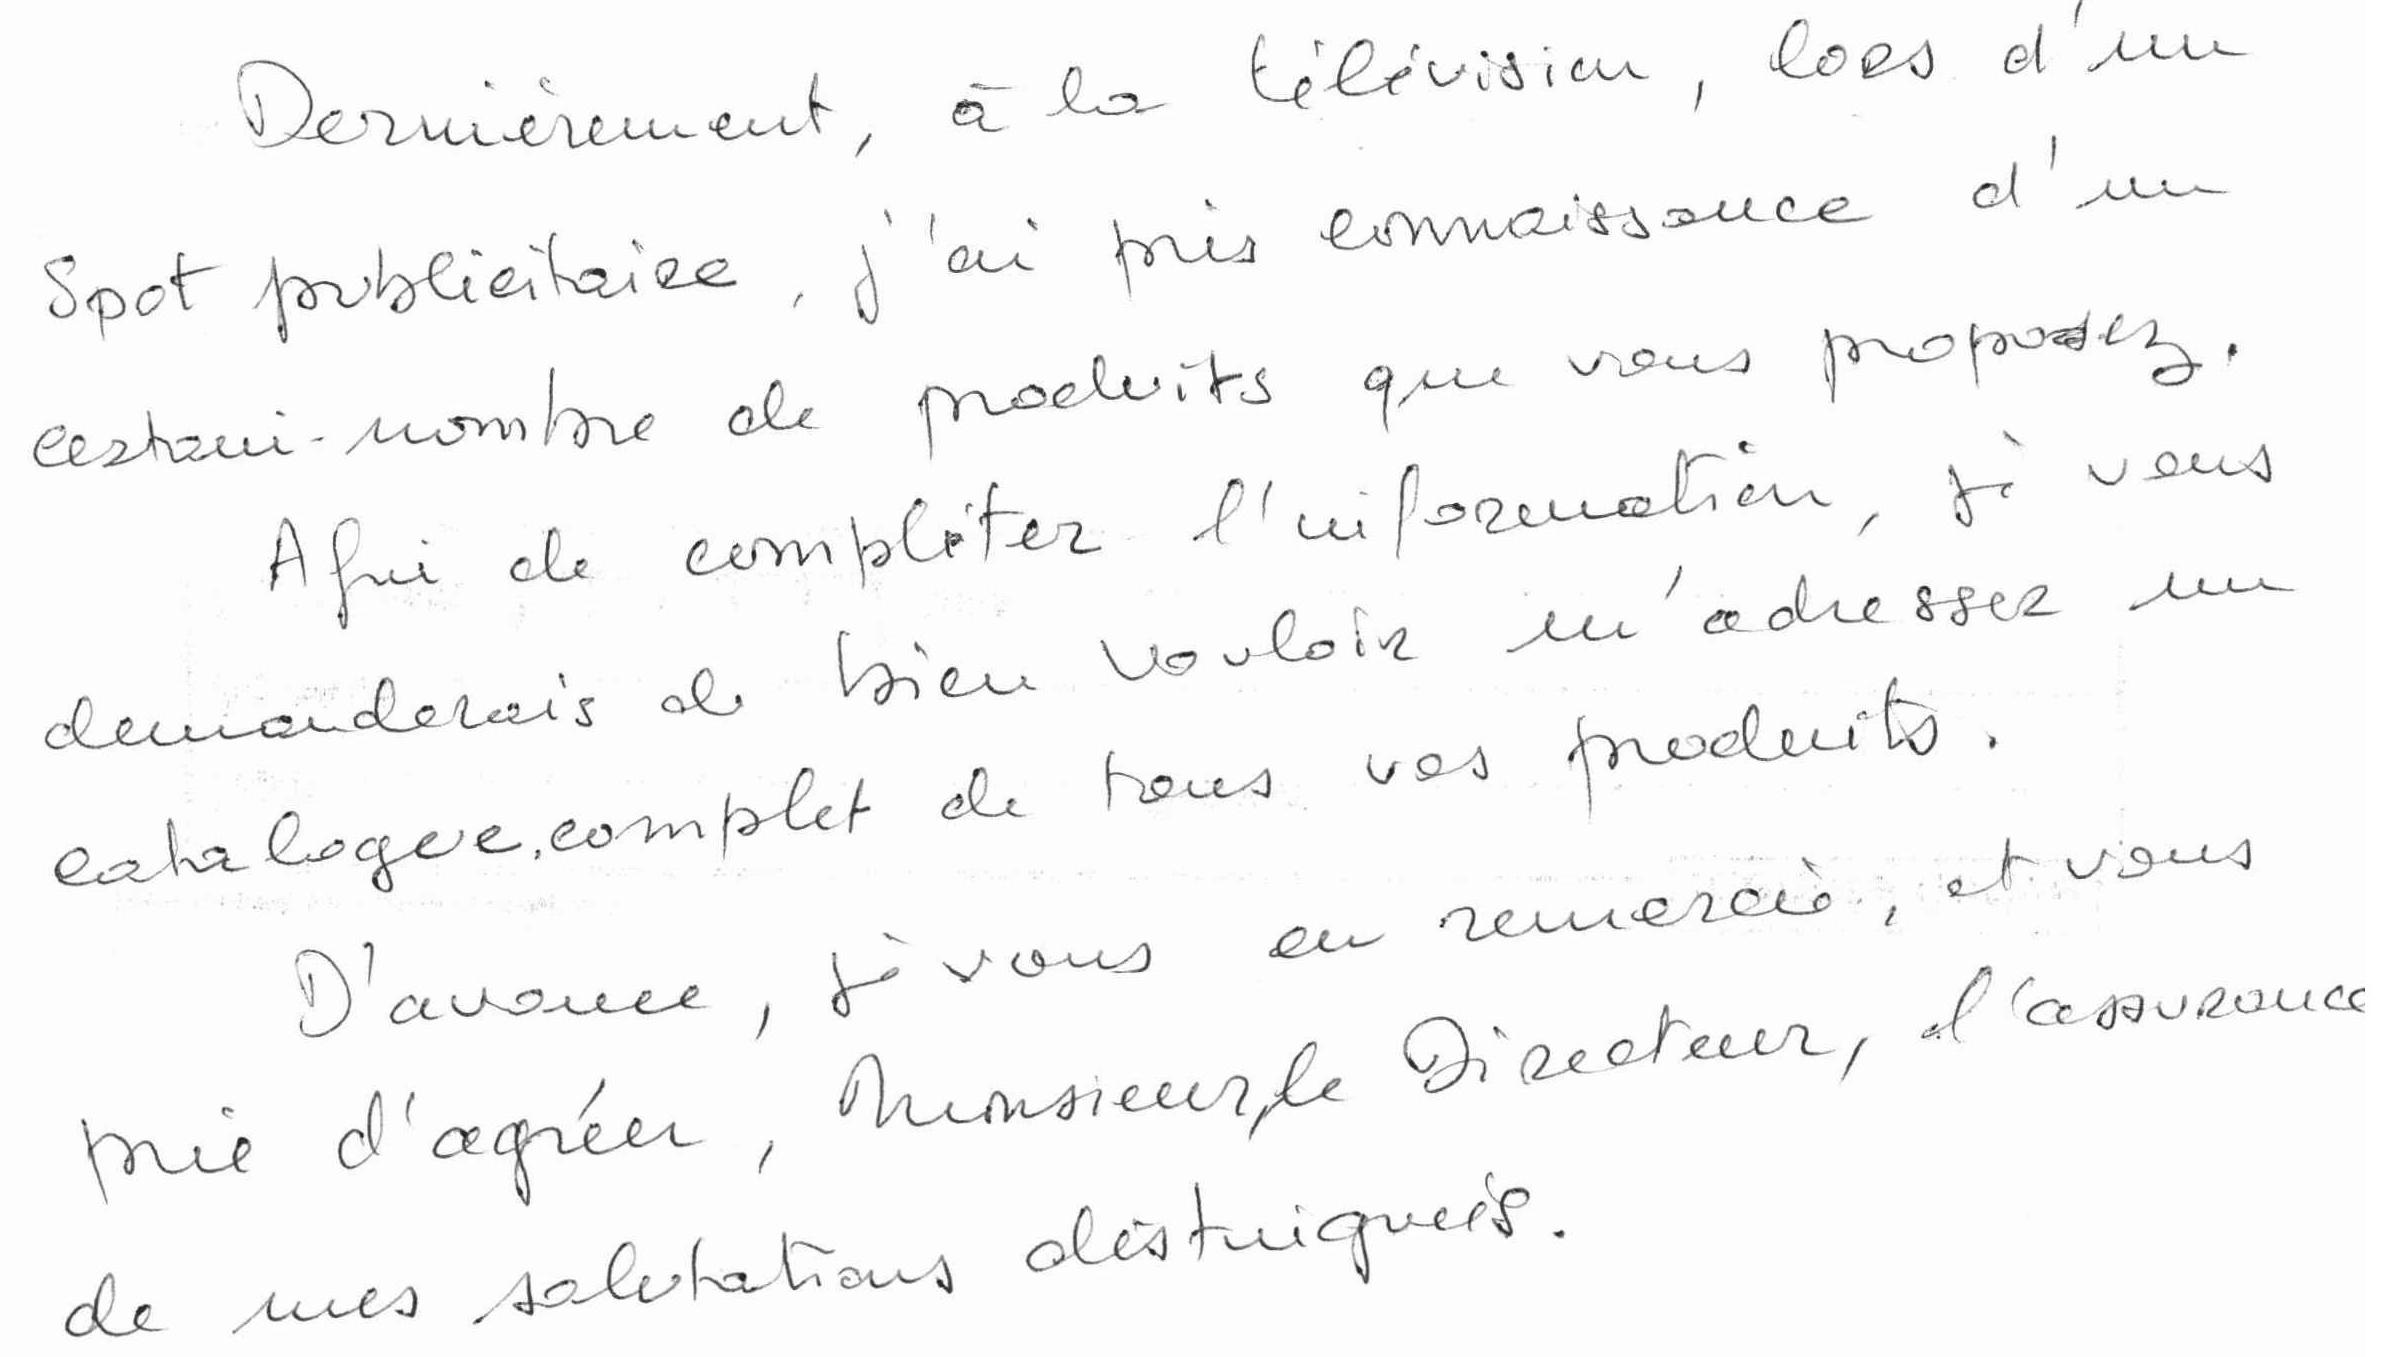 Dernièrement, à la télévision, lors d'un
Spot publicitaire, j'ai pris connaissance d'un
certain nombre de produits que vous proposez.
Afin de compléter l'information, je vous
demanderais de bien vouloir m'adresser un
catalogue complet de tous vos produits.
D'avance, je vous en remercie, et vous
prie d'agréer, Monsieur, le Directeur, l'assurance
de mes salutations distinguées.